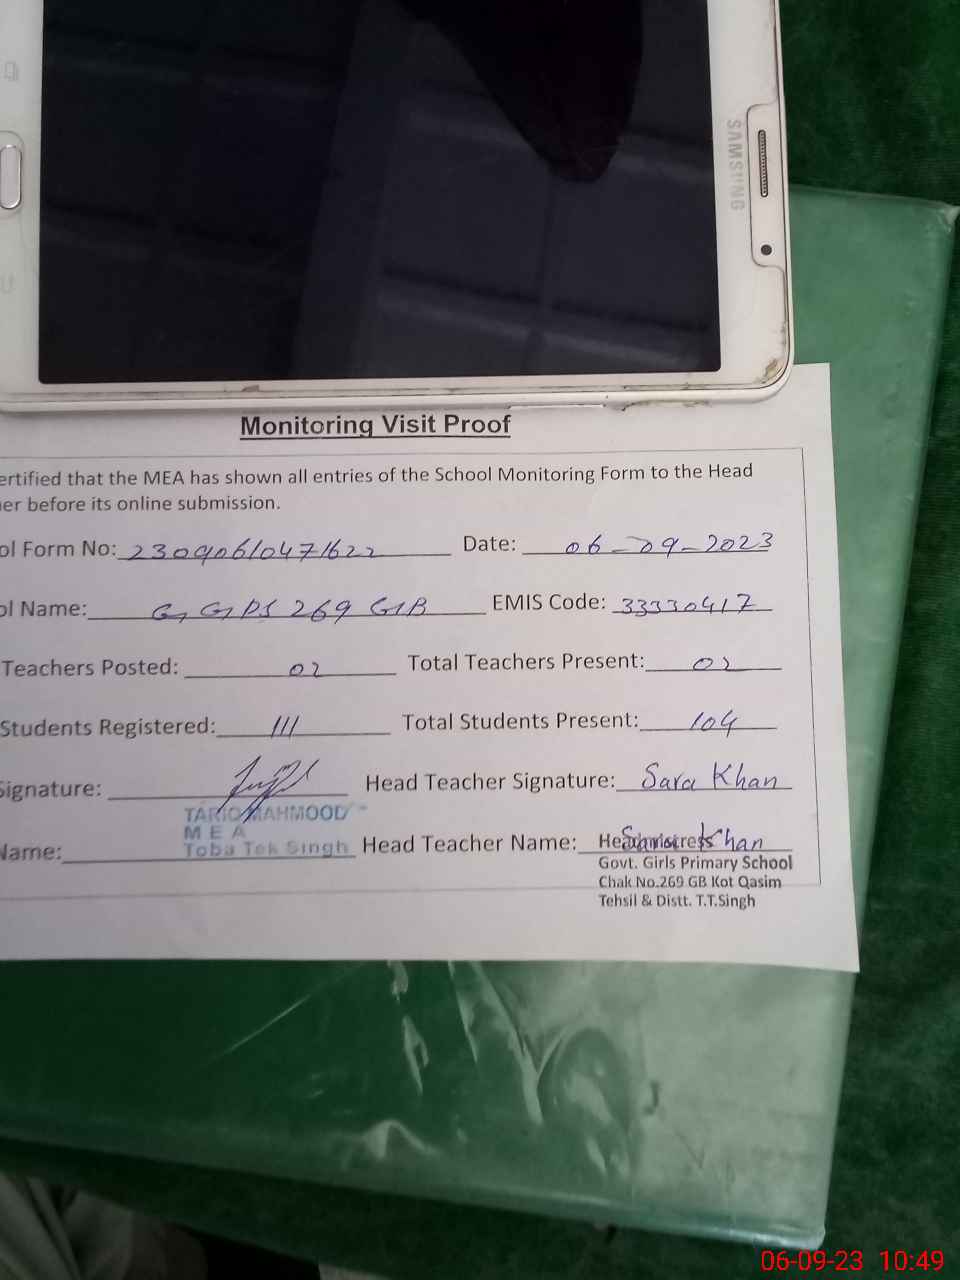 SAMSUNG
Monitoring Visit Proof
ertified that the MEA has shown all entries of the School Monitoring Form to the Head
er before its online submission.
ol Form No: 23090610471622 Date: 06-09-2023
ol Name: GGPS 269 GB EMIS Code: 33330417
Teachers Posted: 02 Total Teachers Present: 02
Students Registered: 111 Total Students Present: 104
Signature: Head Teacher Signature: Sara Khan
TARIQ MAHMOOD
M E A
Name: Toba Tek Singh Head Teacher Name: Sara Khan
Headmistress
Govt. Girls Primary School
Chak No.269 GB Kot Qasim
Tehsil & Distt. T.T.Singh
06-09-23 10:49